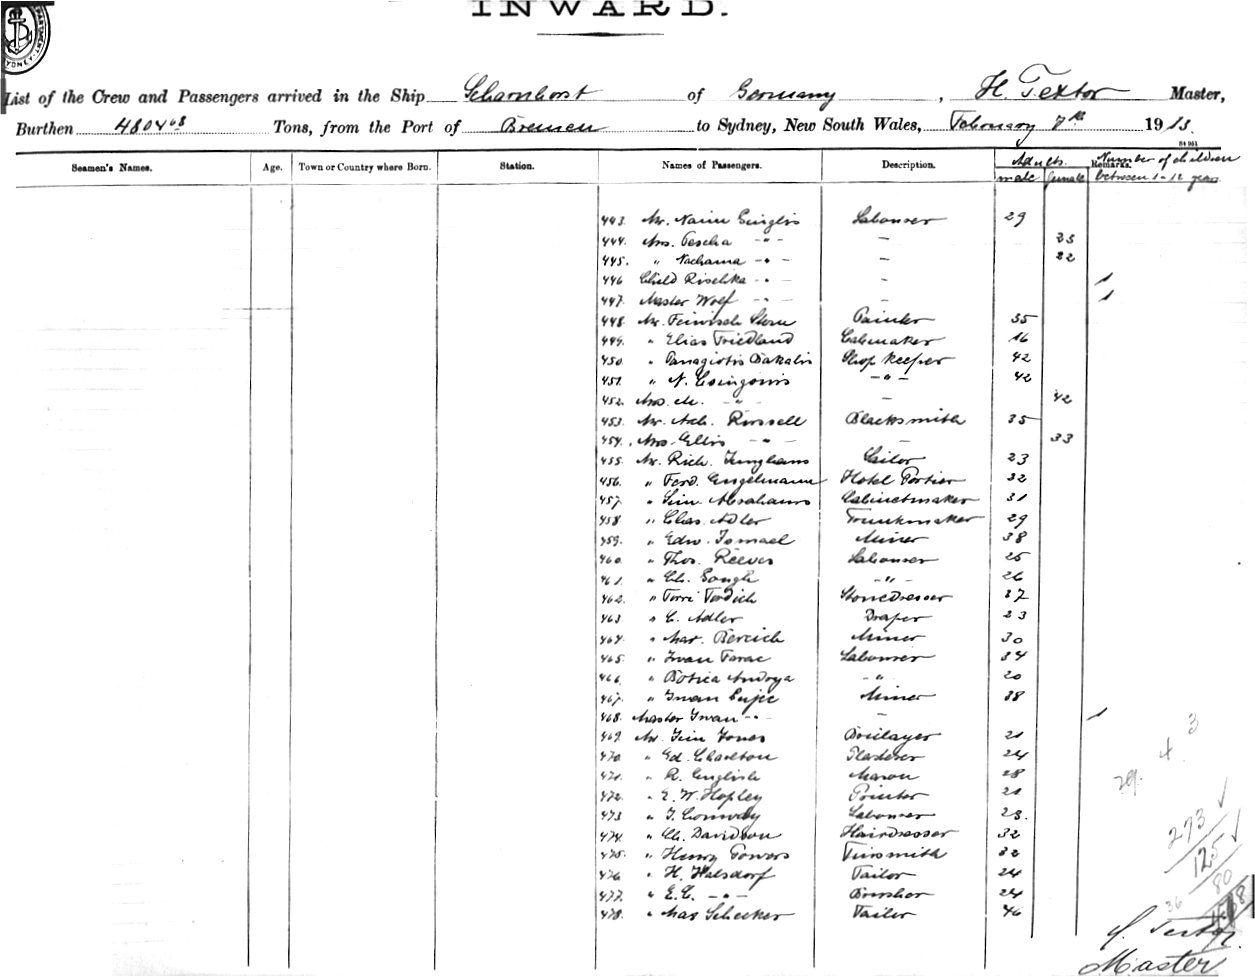 INWARD.
SYDNEY
List of the Crew and Passengers arrived in the Ship Scharnhorst of Germany, H. Textor Master,
Burthen 4804 68 Tons, from the Port of Bremen to Sydney, New South Wales, February 7th 1913.
Seamen's Names. Age. Town or Country where Born. Station. Names of Passengers. Description. Adults. male female Remarks. Number of children between 1-12 years
443. Mr. Naum Labourer 29
444. Mrs. Pescha -"- — 25
445. " Nachama -"- — 22
446 Child Rischka -"- — 1
447. Master Wolf -"- — 1
448. Mr. Feiwisch Stern Painter 35
449. " Elias Friedland Cabmaker 16
450. " Panagiotis Dakalis Shop keeper 42
451. " N. -"- 42
452. Mrs. M. -"- — 42
453. Mr. Arch. Russell Blacksmith 35
454. Mrs. Ellis -"- — 33
455. Mr. Rich. Junghans Sailor 23
456. " Ferd. Engelmann Hotel Portier 32
457. " Sim. Abrahams Cabinetmaker 31
458 " Chas. Adler Trunkmaker 29
459. " Edw. Ismael Miner 38
460. " Thos. Reeves Labourer 25
461. " Ch. Gough -"- 26
462. " Stonedresser 37
463 " C. Adler Draper 23
464. " Mar. Bercich Miner 30
465. " Iwan Tarac Labourer 34
466. " Andrya -"- 20
467. " Iwan Miner 38
468. Master Iwan -"- — 1
469. Mr. Jim Jones 21
470. " Ed. Charlton 24
471. " R. English Mason 28
472. " E. W. Hopley Printer 21
473 " J. Conway Labourer 23.
474. " Ch. Davidson Hairdresser 32
475. " Henry Powers Tinsmith 32
476 " H. Halsdorf Tailor 24
477. " E. C. -"- 24
478. " Max Schecker Tailor 46
29. 4 3
273
125
80
36
H. Textor
Master